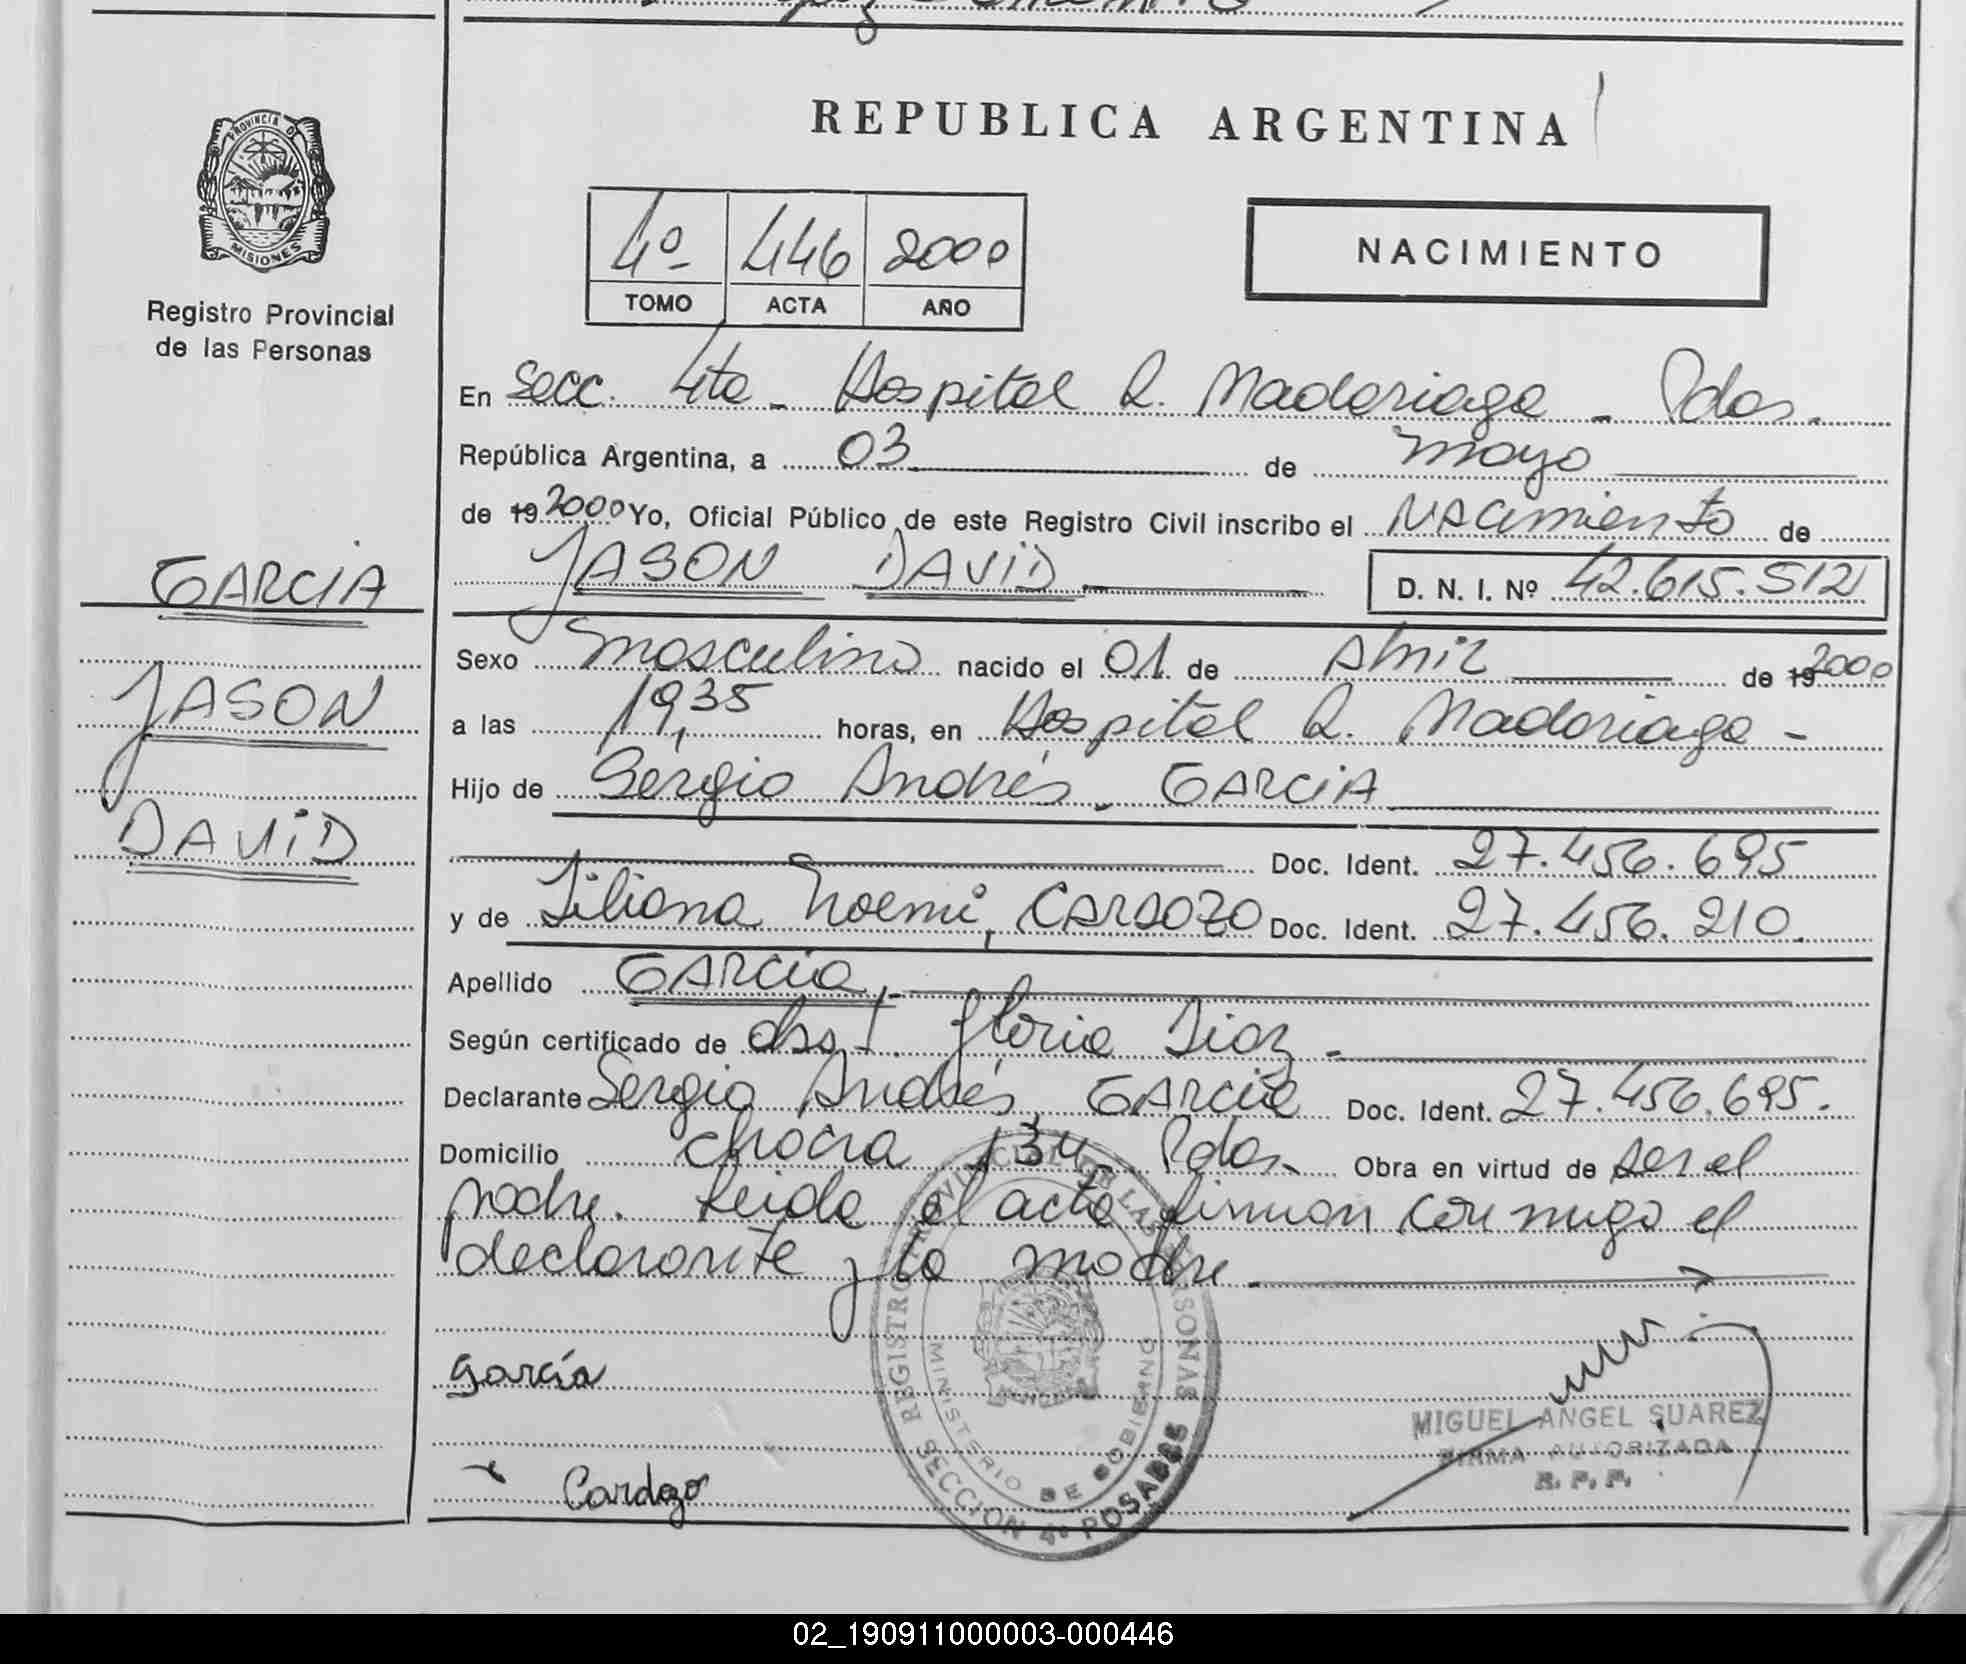 REPUBLICA ARGENTINA
PROVINCIA D
MISIONES
Registro Provincial
de las Personas
4º 446 2000
TOMO ACTA AÑO
NACIMIENTO
En Secc. 4ta - Hospital R. Madariaga - Pdas.
República Argentina, a 03 de mayo
de 19 2000 Yo, Oficial Público de este Registro Civil inscribo el Nacimiento de
JASON DAVID D. N. I. Nº 42.615.512
Sexo masculino nacido el 01 de Abril de 19 2000
a las 19,35 horas, en Hospital R. Madariaga -
Hijo de Sergio Andrés - GARCIA
Doc. Ident. 27.456.695
y de Liliana Noemi, CARDOZO Doc. Ident. 27.456.210.
Apellido GARCIA,
Según certificado de Obst. Gloria Diaz -
Declarante Sergio Andrés, GARCIA Doc. Ident. 27.456.695.
Domicilio chacra 134 Pdas - Obra en virtud de ser el
padre. Leida el acta firman conmigo el
declarante y la madre.
GARCIA
JASON
DAVID
García
Cardozo
REGISTRO PROVINCIAL DE LAS PERSONAS
MINISTERIO DE GOBIERNO
SECCION 4ª POSADAS
MIGUEL ANGEL SUAREZ
FIRMA AUTORIZADA
R. P. P.
02_190911000003-000446